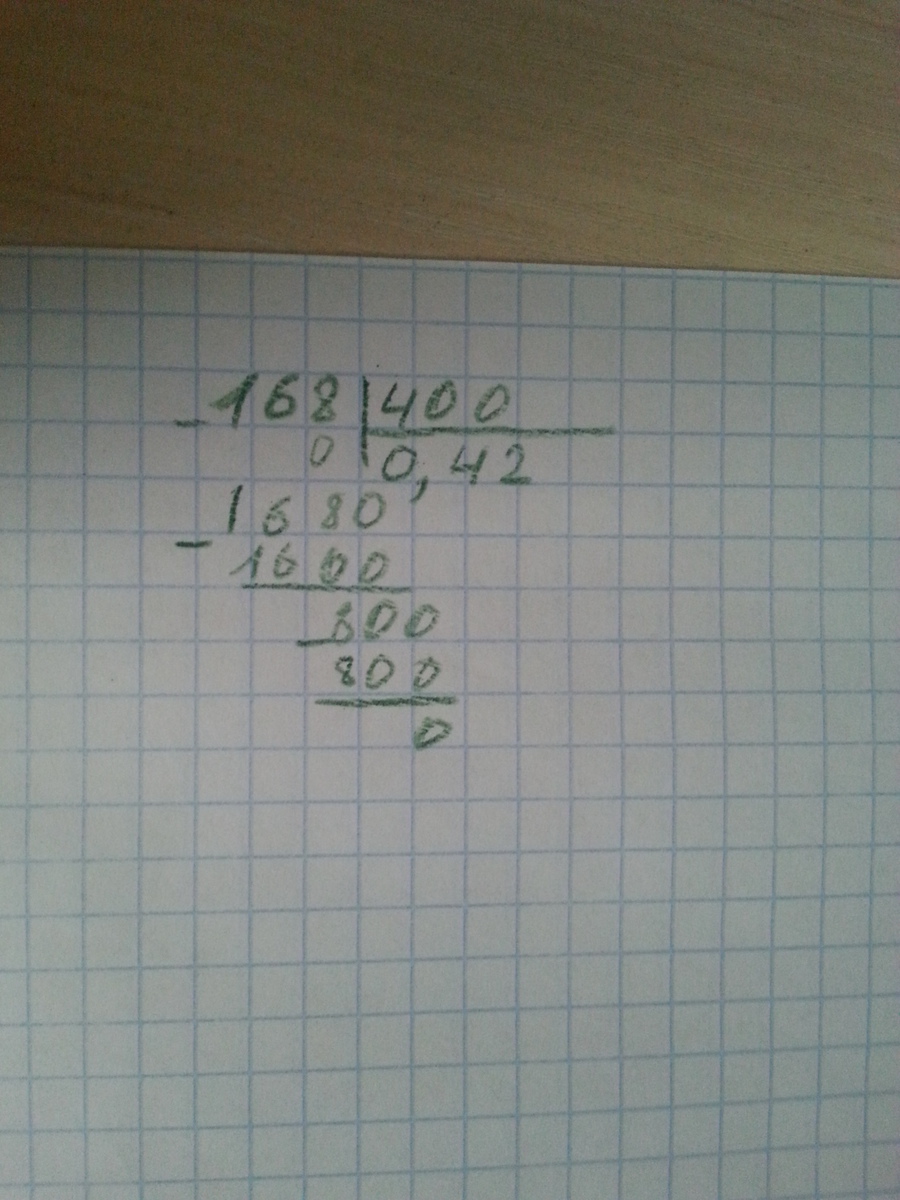 -168|400
0|0,42
1680
-1600
-800
800
0